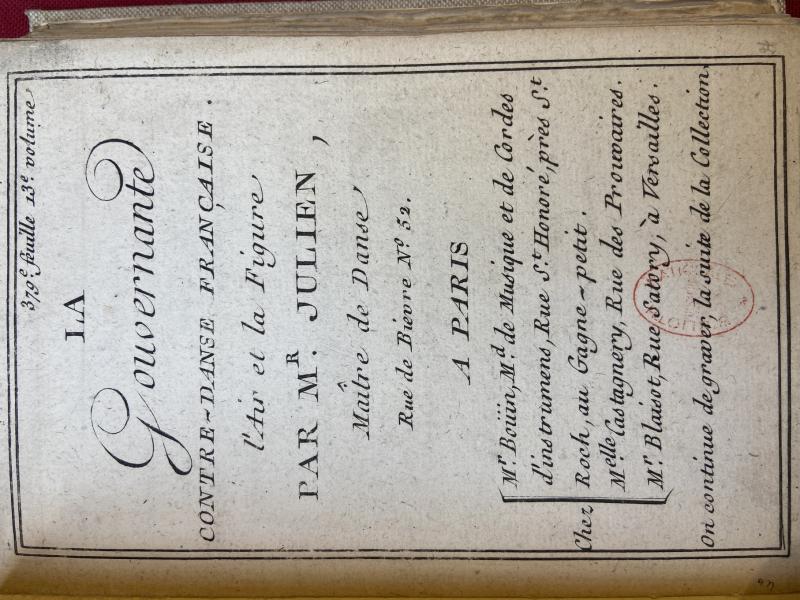 379.e feuille 13.e volume
LA
Gouvernante
CONTRE-DANSE FRANÇAISE.
l'Air et la Figure
PAR M.R JULIEN,
Maître de Danse
Rue de Bievre N.o 52.
A PARIS
Chez
M.r Boüin, M.d de Musique et de Cordes
d'instrumens, Rue S.t Honoré, près S.t
Roch, au Gagne-petit.
M.elle Castagnery, Rue des Prouvaires.
M.r Blaisot, Rue Satory, à Versailles.
On continue de graver, la suite de la Collection.